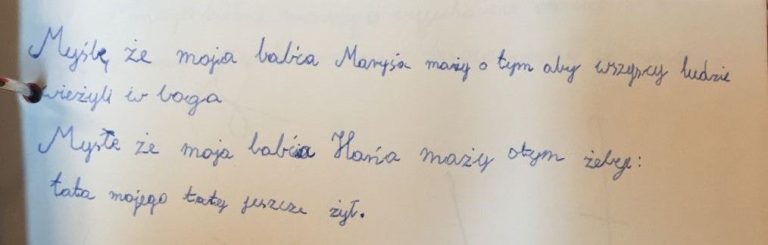 Myślę że moja babcia Marysia maży o tym aby wszyscy ludzie
wieżyli w boga
Myśle że moja babcia Hania maży otym żeby:
tata mojego taty jeszcze żył.